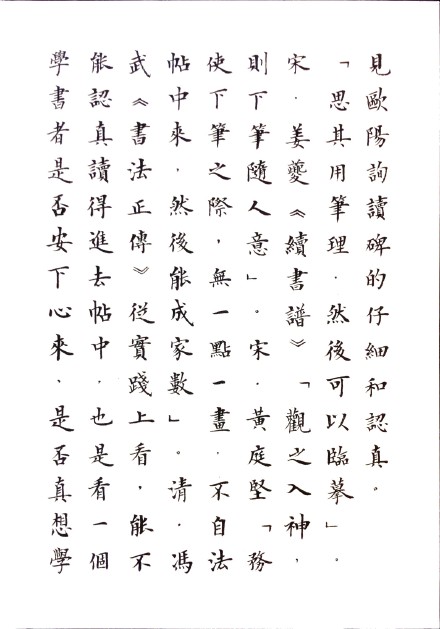 見歐陽詢讀碑的仔細和認真。
「思其用筆理．然後可以臨摹」。
宋．姜夔《續書譜》「觀之入神，
則下筆隨人意」。宋．黃庭堅「務
使下筆之際，無一點一畫．不自法
帖中來．然後能成家數」。清．馮
武《書法正傳》從實踐上看，能不
能認真讀得進去帖中．也是看一個
學書者是否安下心來．是否真想學